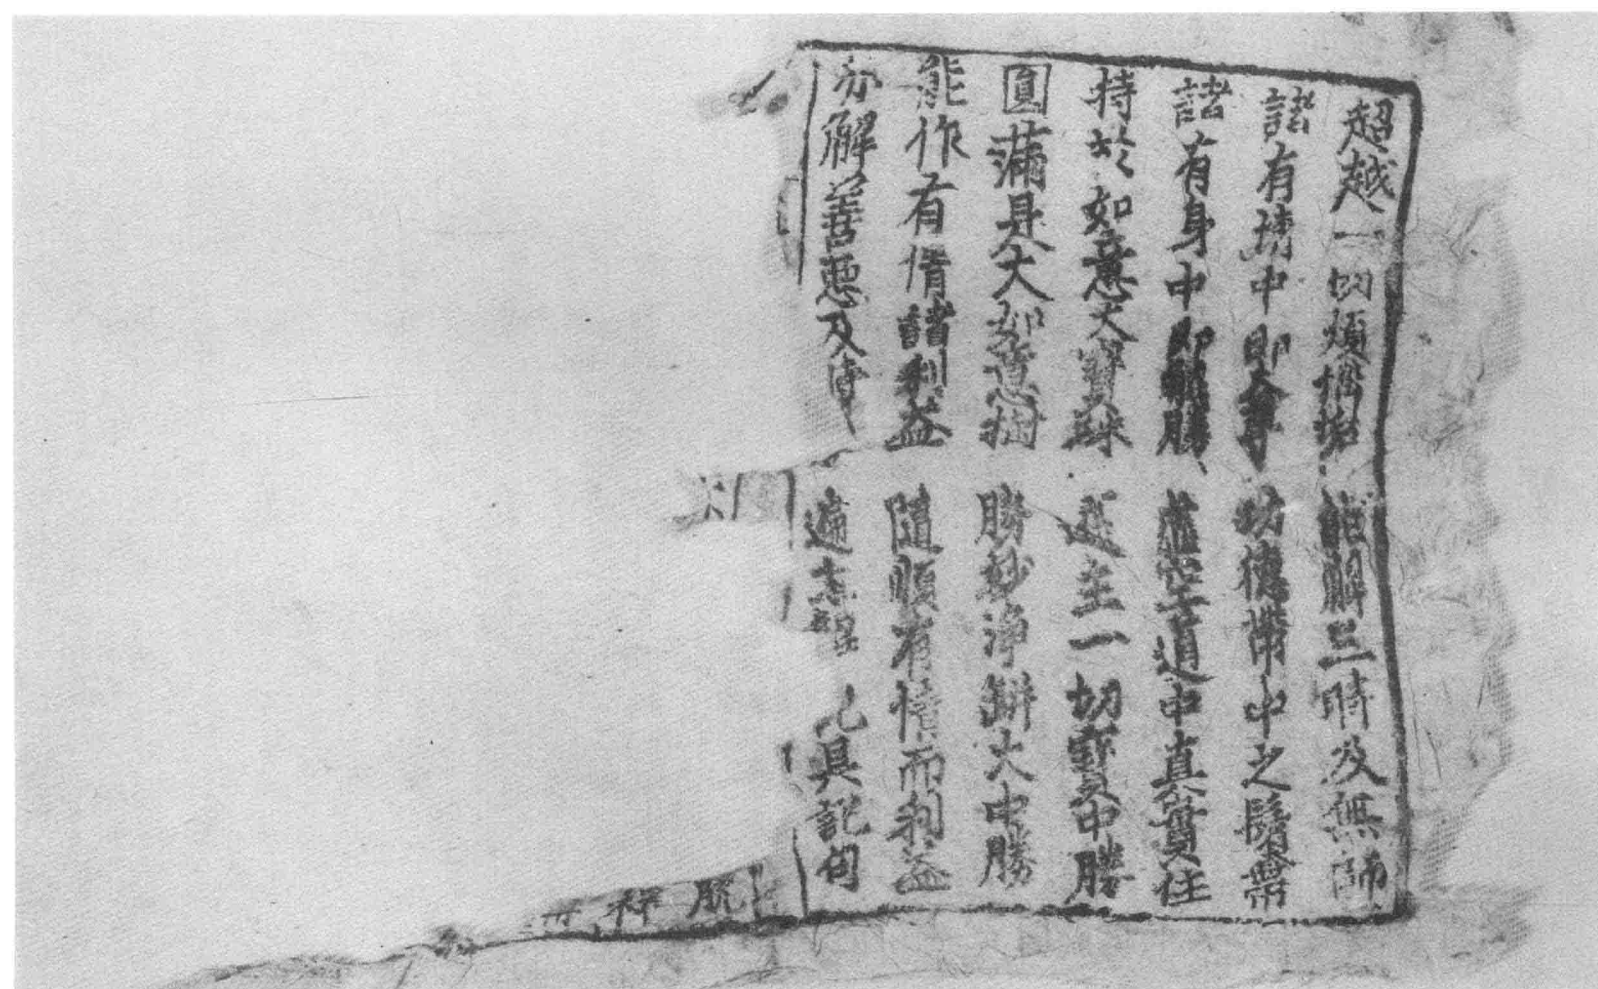 超越一切煩惱垢 能解三時及無師
諸有情中即大尊 功德帶中之鬘髻
諸有身中即勝 虛空道中真實住
持於如意大寶珠 遍主一切寶中勝
圓滿是大如意樹 勝妙淨缾大中勝
能作有情諸利益 隨順有情而利益
亦解善惡及時 遍主解記具記句
脫
祥